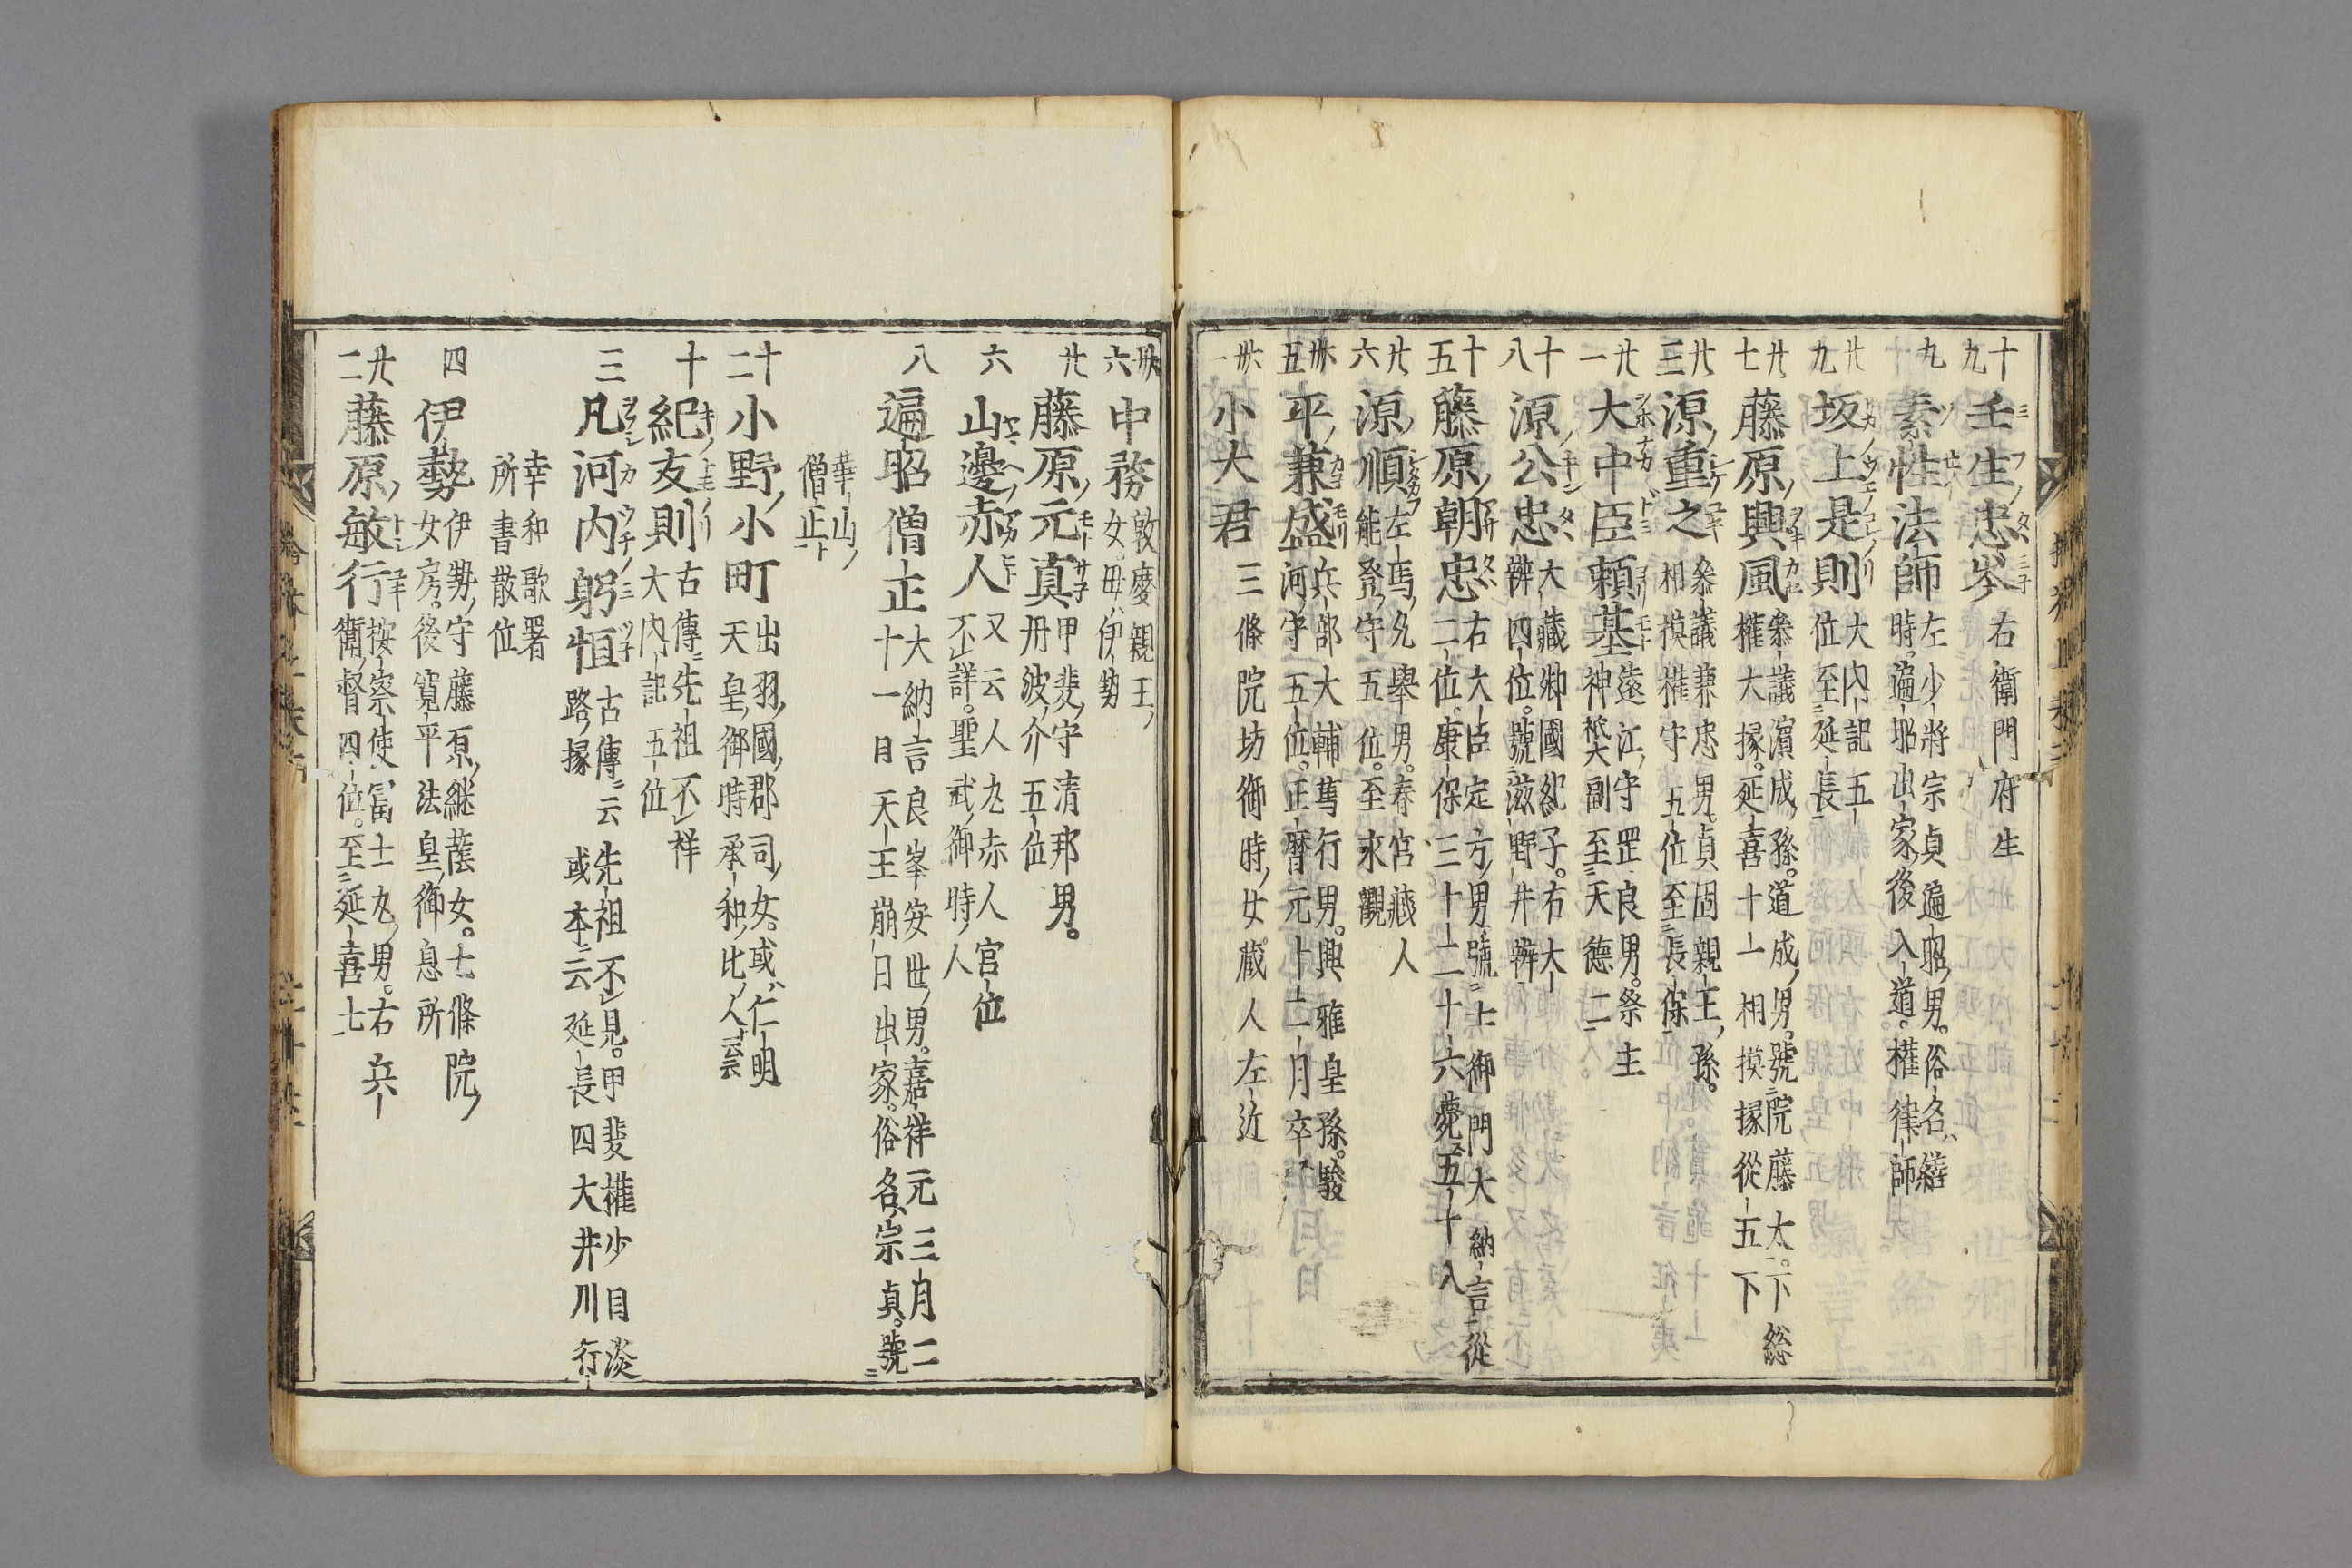 十九 壬生忠岑 右衛門府生
九 素性法師 左少将宗貞遍昭男。俗名繕
時。遍昭出家後入道。權律師
廿九 坂上是則 大内記五
位至延長
廿七 藤原興風 叅議濱成孫。道成男。號院藤太。下総
權大掾。延喜十一相摸掾從五下
廿三 源重之 叅議兼忠男。貞固親王孫。
相摸權守五位至長保
廿一 大中臣頼基 遠江守罡良男。祭主
神祇大副至天德二
十八 源公忠 大藏卿國紀子。右大
辨四位。號滋野井辨
十五 藤原朝忠 右大臣定方男號土御門大納言從
二位。康保三十二十六薨五十八
廿六 源順 左馬允舉男。春宮藏人
能登守五位。至永觀
卅五 平兼盛 兵部大輔篤行男。興雅皇孫。駿
河守五位。正暦元十二月卒
卅一 小大君 三條院坊御時女藏人左近
卅六 中務 敦慶親王
女。毋伊勢
廿 藤原元真 甲斐守清邦男。
丹波介五位
六 山邊赤人 又云人丸赤人官位
不詳。聖武御時人
八 遍昭僧正 大納言良峯安世男。嘉祥元三月二
十一日天王崩日出家。俗名宗貞。號
華山
僧正
十二 小野小町 出羽國郡司女。或仁明
天皇御時承和比人云云
十 紀友則 古傳先祖不祥
大内記五位
三 凡河内躬恒 古傳云先祖不見。甲斐權少目淡
路掾 或本云延長四大井川行
幸和歌署
所書散位
四 伊勢 伊勢守藤原継蔭女。七條院
女房。後寛平法皇御息所
廿二 藤原敏行 按察使冨士丸男。右兵
衛督四位。至延喜七